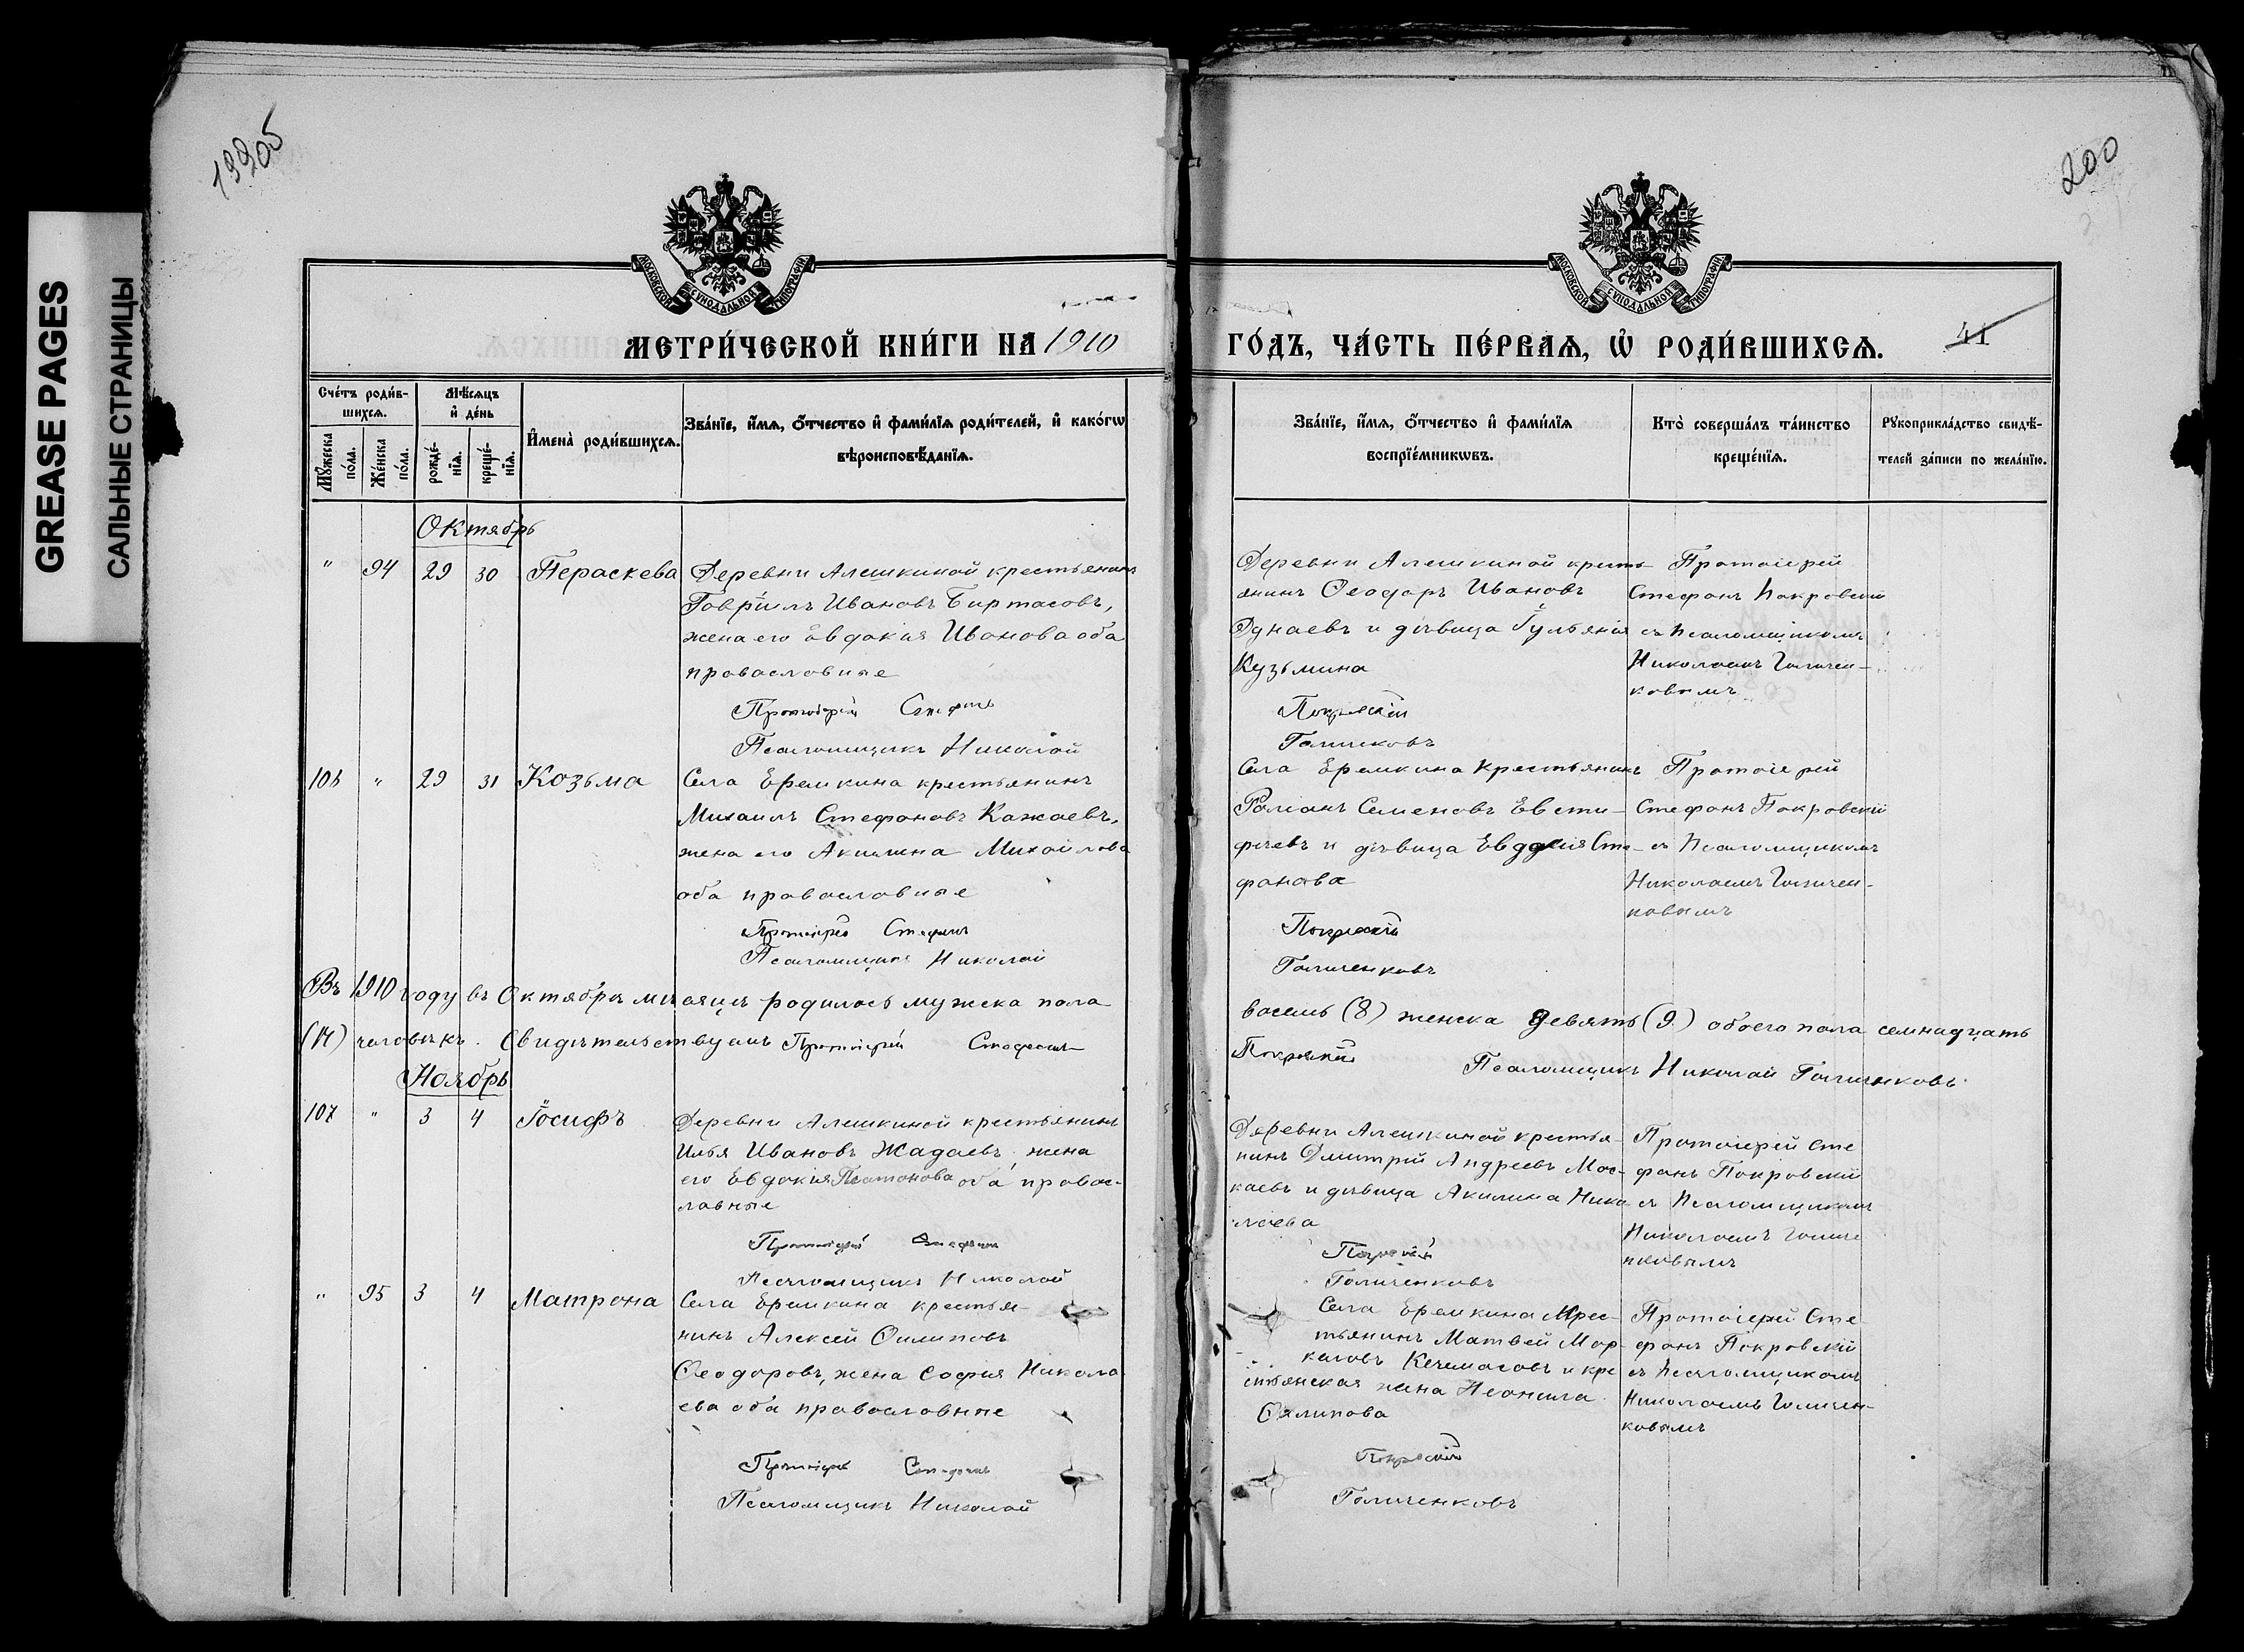 GREASE PAGES
САЛЬНЫЕ СТРАНИЦЫ
200
МОСКОВСКОЙ СѴНОДАЛЬНОЙ ТИПОГРАФІИ
МОСКОВСКОЙ СѴНОДАЛЬНОЙ ТИПОГРАФІИ
МЕТРИ́ЧЕСКОЙ КНИ́ГИ НА 1910
ГО́ДЪ, ЧА́СТЬ ПЕ́РВАѦ, Ѡ҆ РОДИ́ВШИХСѦ.
41
Сче́тъ роди́в-
шихсѧ.
Мѣсѧцъ
и҆ де́нь
Мꙋ́жеска
по́ла.
Же́нска
пола.
рожде́-
нїѧ.
креще́-
нїѧ.
И҆мена̀ роди́вшихсѧ.
Зва́нїе, и҆́мѧ, ѻ҆́тчество и҆ фами́лїѧ роди́телей, и҆ како́гѡ
вѣроисповѣ́данїѧ.
Зва́нїе, и҆́мѧ, ѻ҆́тчество и҆ фами́лїѧ
воспрїе́мникѡвъ.
Кто̀ соверша́лъ та́инство
креще́нїѧ.
Рꙋкоприкла́дство свидѣ́-
телей за́писи по жела́нїю.
Октябрь
" 94 29 30 Пераскева
Деревни Алешкиной крестьянинъ
Гавріилъ Ивановъ Биртасовъ,
жена его Евдокия Иванова оба
православные
Протоіерей Стефанъ
Псаломщикъ Николай
Деревни Алешкиной кресть-
янинъ Ѳеодоръ Ивановъ
и дѣвица Іульянія
Кузьмина
Покровскій
Голиченковъ
Протоіерей
Стефанъ Покровскій
съ Псаломщикомъ
Николаемъ Голичен-
ковымъ
106 " 29 31 Козьма
Села Еремкина крестьянинъ
Михаилъ Стефановъ Кажаевъ,
жена его Акилина Михайлова
оба православные
Протоіерей Стефанъ
Псаломщикъ Николай
Села Еремкина крестьянинъ
Романъ Семеновъ Евсти-
фѣевъ и дѣвица Евдокия Сте-
фанова
Покровскій
Голиченковъ
Протоіерей
Стефанъ Покровскій
съ Псаломщикомъ
Николаемъ Голичен-
ковымъ
Въ 1910 году въ Октябрѣ мѣсяцѣ родилось мужска пола
восемь (8) женска девять (9) обоего пола семнадцать
(17) человѣкъ. Свидѣтельствуемъ Протоіерей Стефанъ
Покровскій Псаломщикъ Николай Голиченковъ.
Ноябрь
107 " 3 4 Іосифъ
Деревни Алешкиной крестьянинъ
Илья Ивановъ Жадаевъ, жена
его Евдокия Платонова оба правос-
лавные
Протоіерей Стефанъ
Псаломщикъ Николай
Деревни Алешкиной крестья-
нинъ Дмитрій Андреевъ Мос-
каевъ и дѣвица Акилина Нико-
лаева
Покровскій
Голиченковъ
Протоіерей Сте
фанъ Покровскій
съ Псаломщикомъ
Николаемъ Голиче
нковымъ
" 95 3 4 Матрона
Села Еремкина крестья-
нинъ Алексей Филиповъ
Ѳеодоровъ, жена София Никола
ева оба православные
Протоіерей Стефанъ
Псаломщикъ Николай
Села Еремкина Крес-
тьянинъ Матвей Мар-
и кре
стьянская жена Неонила
Филипова
Покровскій
Голиченковъ
Протоіерей Сте
фанъ Покровскій
съ Псаломщикомъ
Николаемъ Голичен-
ковымъ